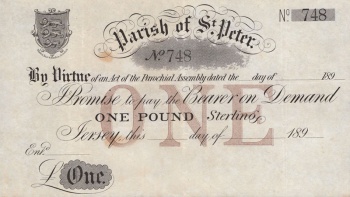 Parish of St. Peter.
No 748
No 748
By Virtue of an Act of the Parochial Assembly dated the day of 189
I Promise to pay the Bearer on Demand
ONE
ONE POUND Sterling,
Jersey, this day of 189
Entd.
£ One.